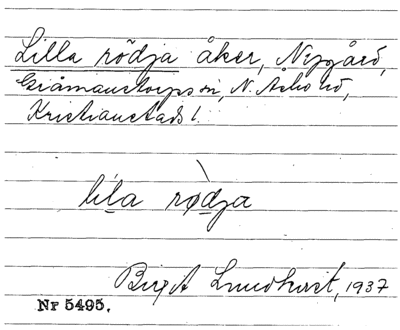 Lilla rödja åker, Nygård,
Gråmanstorps sn, N. Åsbo hd,
Kristianstads l.
lila rødja
Birgit Lundkvist, 1937
Nr 5495.